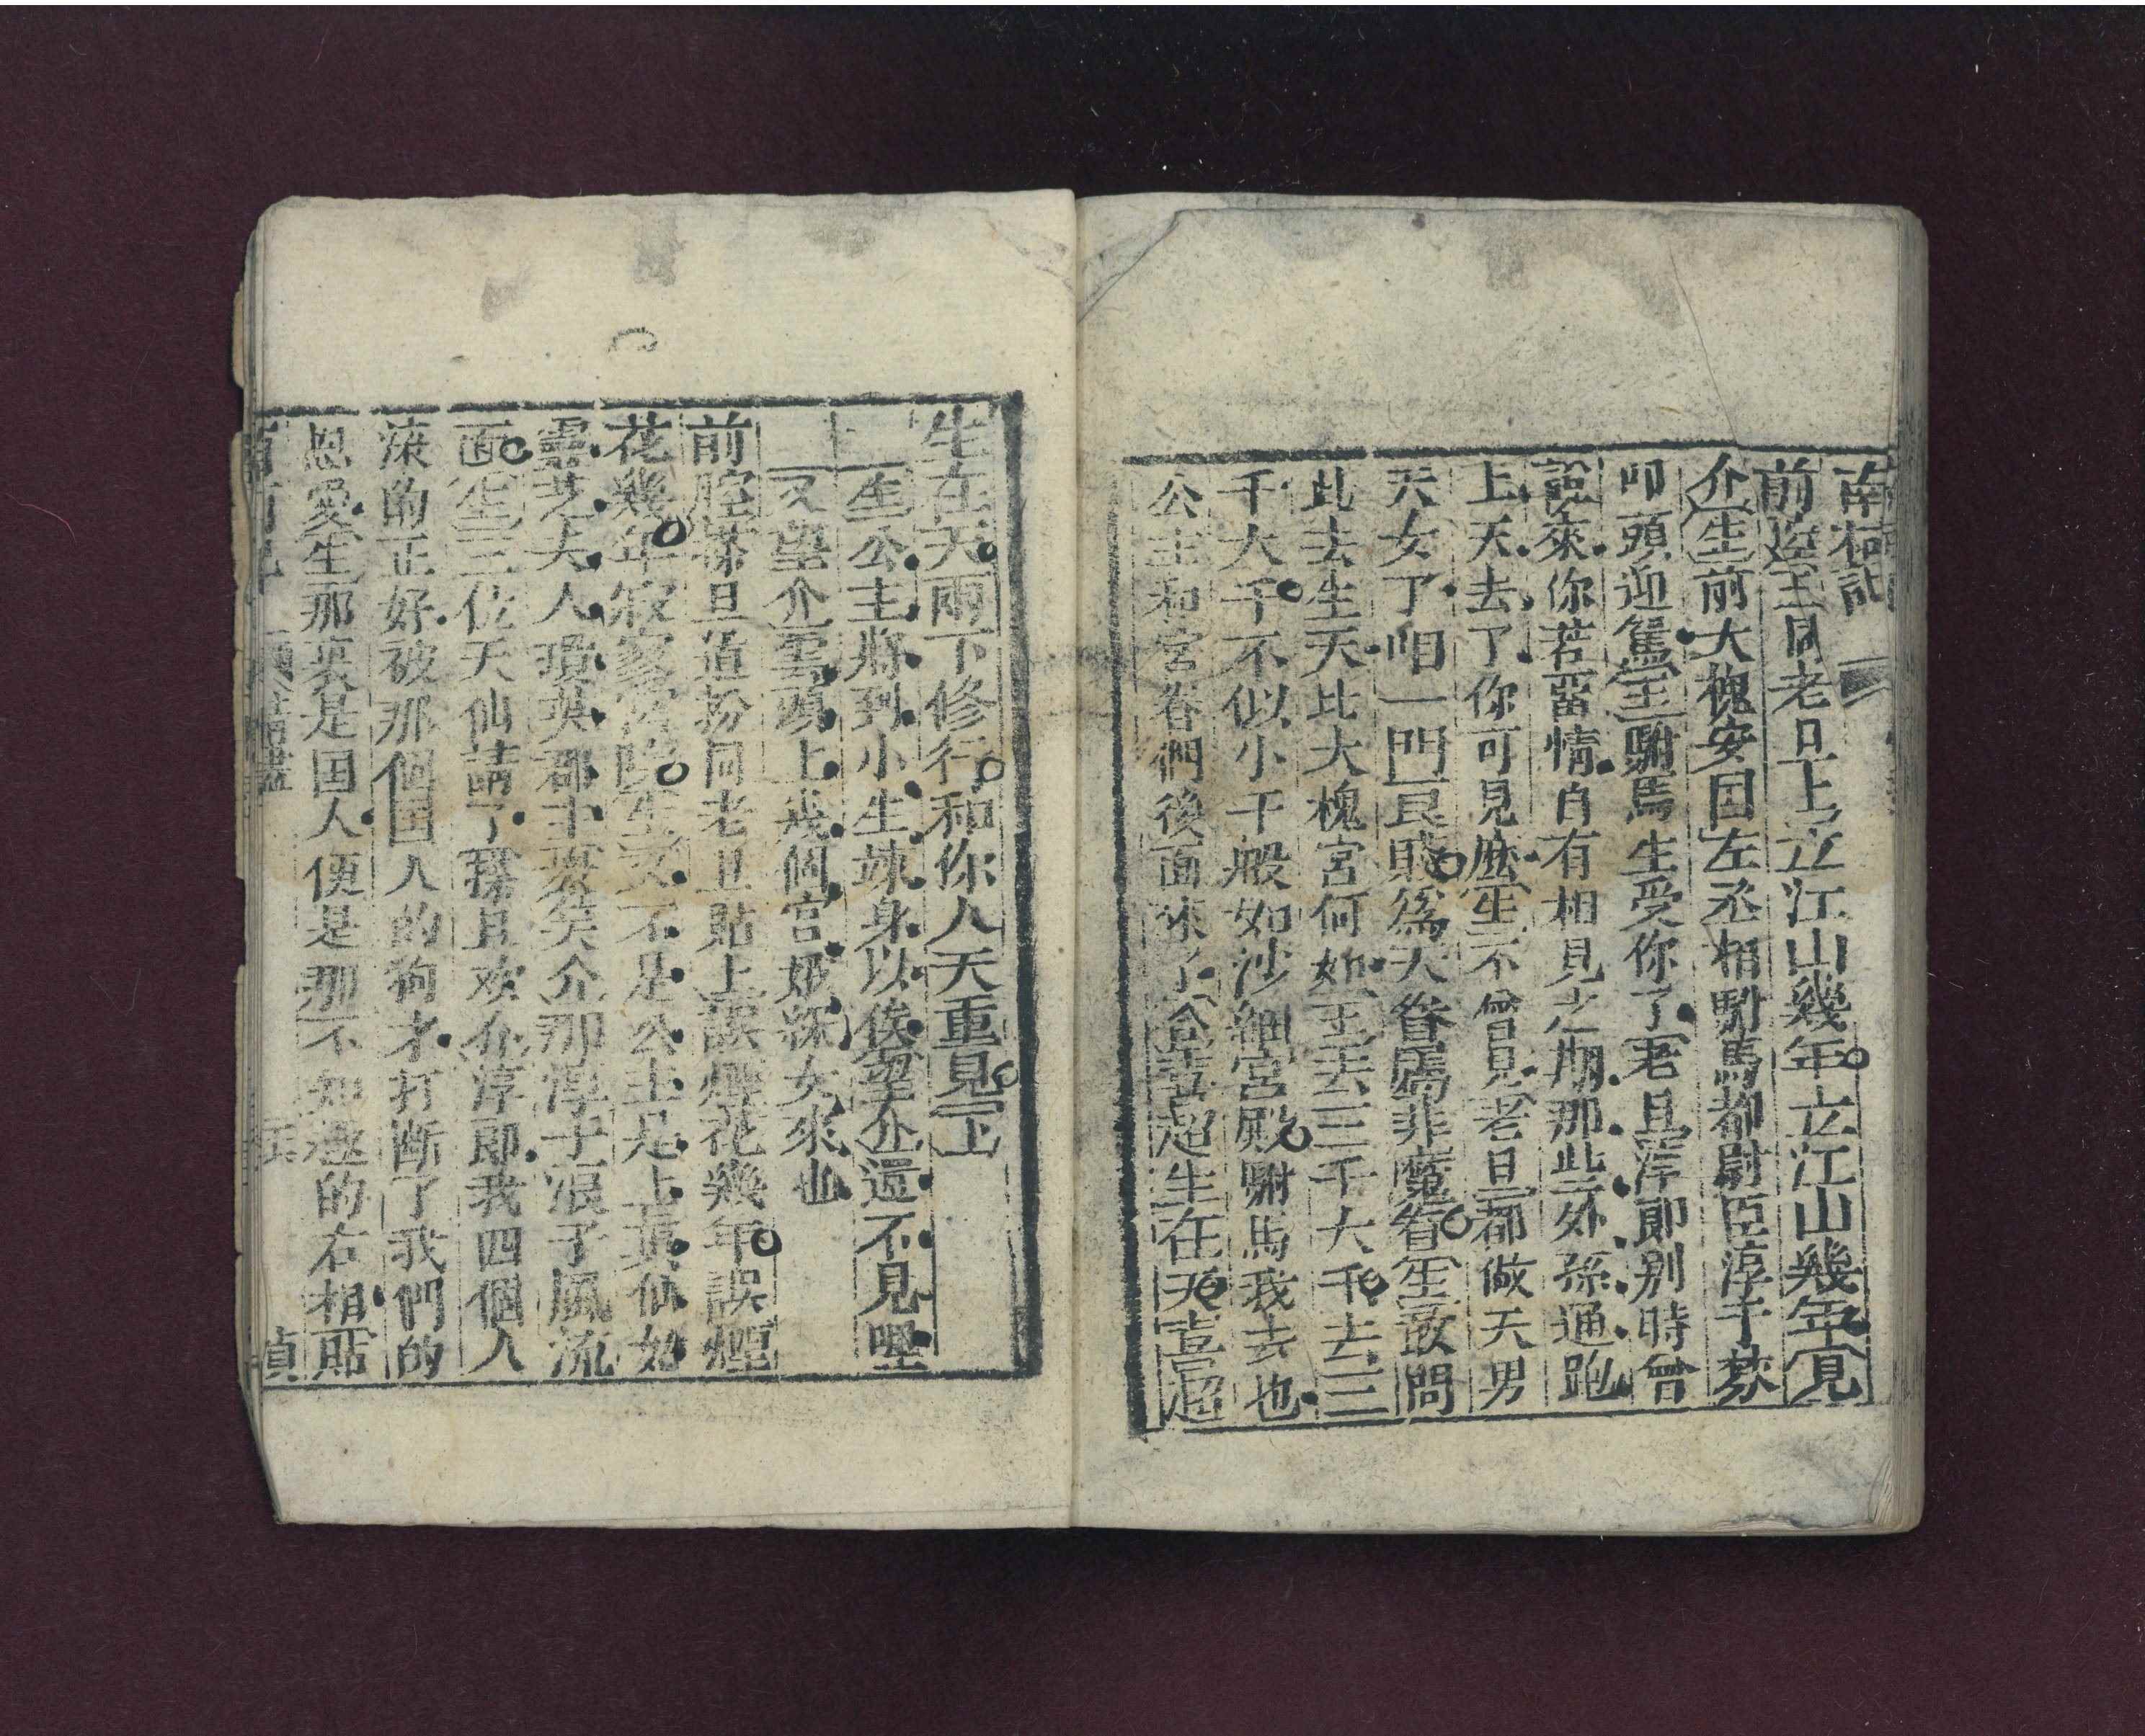 南柯記
前腔王同老旦上立江山幾年立江山幾年見
介生前大槐安国左丞相駙馬都尉臣淳于棼
叩頭迎駕王駙馬生受你了老旦淳郎别時曾
說來你若畱情自有相見之期那些外孫通跑
上天去了你可見麽生不曾見老旦都做天男
天女了咱一門良賤爲天眷屬非魔眷生敢問
此去生天比大槐宮何如王去三千大千去三
千大千不似小千般如沙細宮殿駙馬我去也
公主和宮眷們後面來了合喜超生在天喜超
生在天雨下修行和你人天重見下
生公主將到小生竦身以俟望介還不見哩
又望介雲頭上幾個宮娥綵女來也
前腔搽旦道扮同老旦貼上誤煙花幾年誤煙
花幾年寂寥宮院生又不是公主是上真仙如
靈芝夫人瓊英郡主哭笑介那淳于浪子風流
面生三位天仙請了搽旦欢介淳郎我四個人
滾的正好被那個国人的狗才打断了我們的
恩愛生那裏是国人便是那不知趣的右相貼